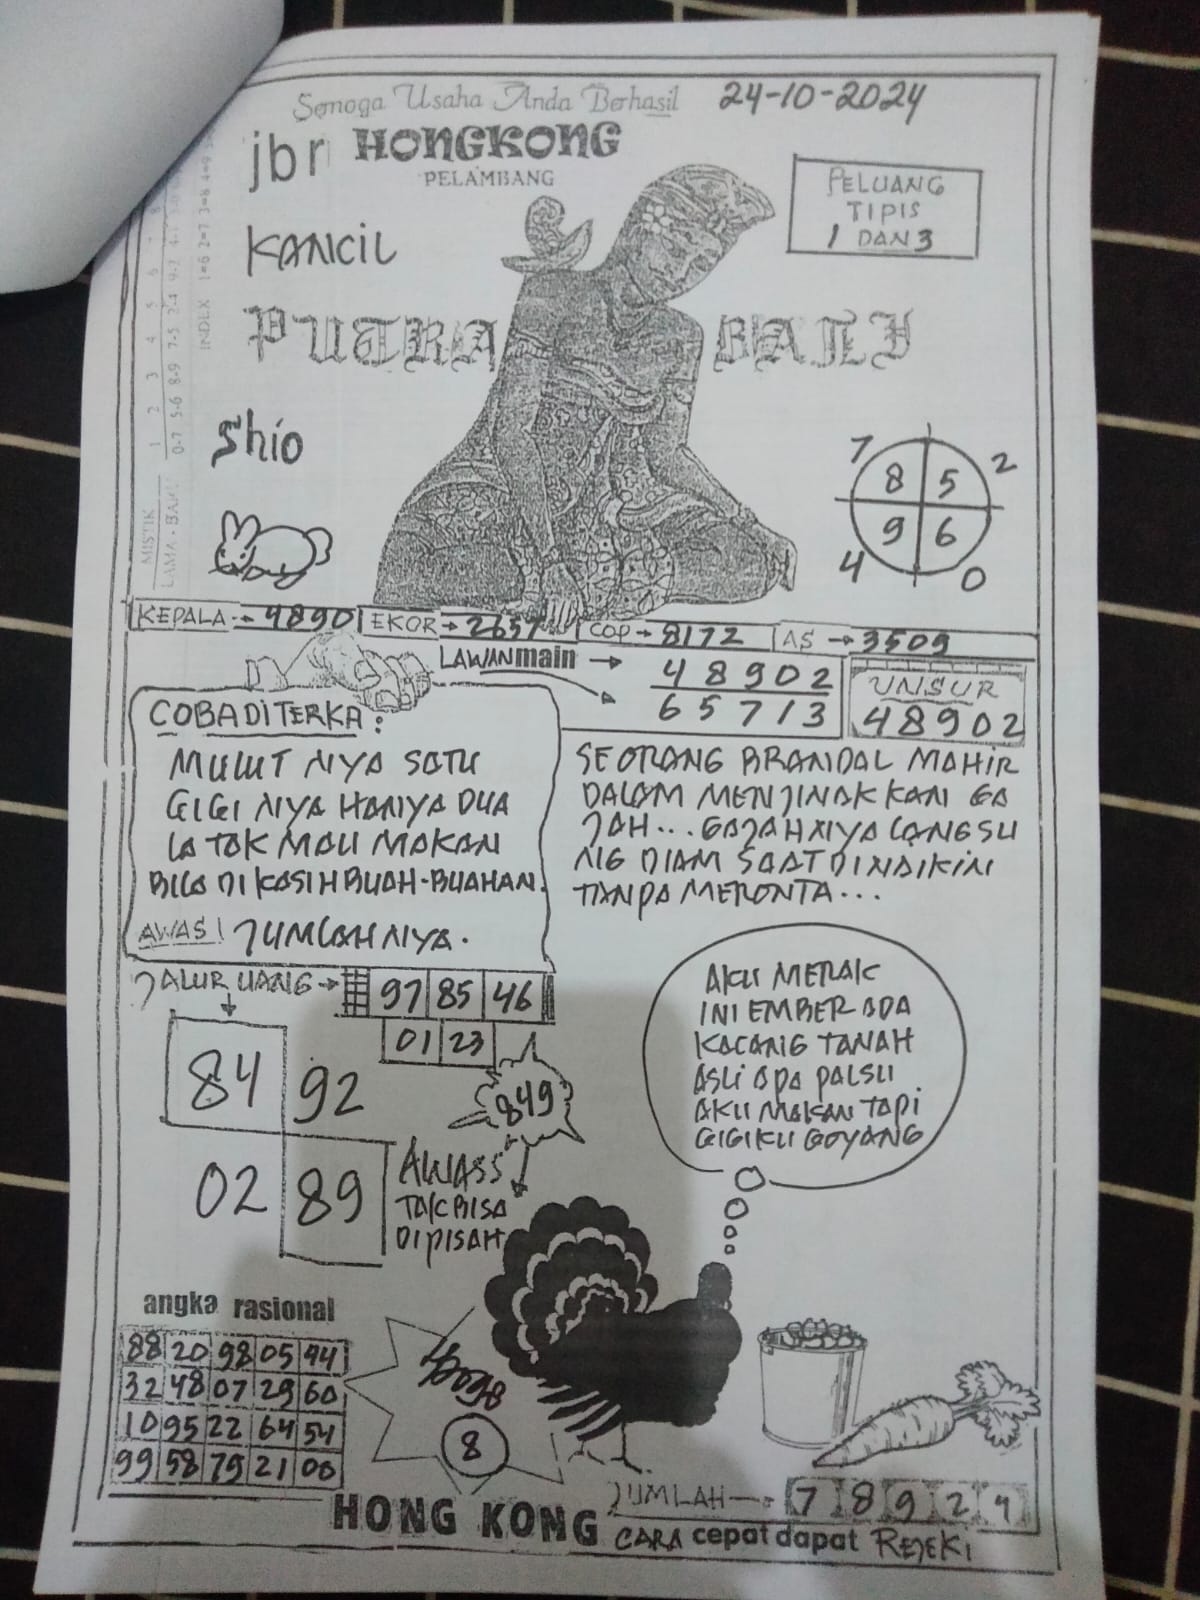 Semoga Usaha Anda Berhasil 24-10-2024
jbr HONGKONG
PELAMBANG
PELUANG
TIPIS
1 DAN 3
KANCIL
PUTRA BALI
Shio
INDEX 1=6 2=7 3=8 4=9
MISTIK 1 2 3 4 5 6 7 8
LAMA - BARU 0-7 5-6 8-9 7-5 2-4 9-2 4-1
7 2
8 5
9 6
4 0
KEPALA → 4890 EKOR → 2657 COP → 8172 AS → 3509
LAWAN main → 48902
65713
UNSUR
48902
COBA DI TERKA:
MULUT NYA SATU
GIGI NYA HANYA DUA
IA TAK MAU MAKAN
BILA DI KASIH BUAH-BUAHAN.
AWAS! JUMLAH NYA.
SEORANG BRANDAL MAHIR
DALAM MENJINAK KAN GA
JAH... GAJAH NYA LANGSU
NG DIAM SAAT DI NAIKINI
TANPA MERONTA...
JALUR UANG → 97 85 46
01 23
84 92
02 89
849
AWASS
TAK BISA
DIPISAH
AKU MERAK
INI EMBER ADA
KACANG TANAH
ASLI APA PALSU
AKU MAKAN TAPI
GIGIKU GOYANG
angka rasional
88 20 98 05 94
32 48 07 29 60
10 95 22 64 54
99 58 79 21 06
8
JUMLAH → 7 8 9 2 4
HONG KONG CARA cepat dapat REJEKI